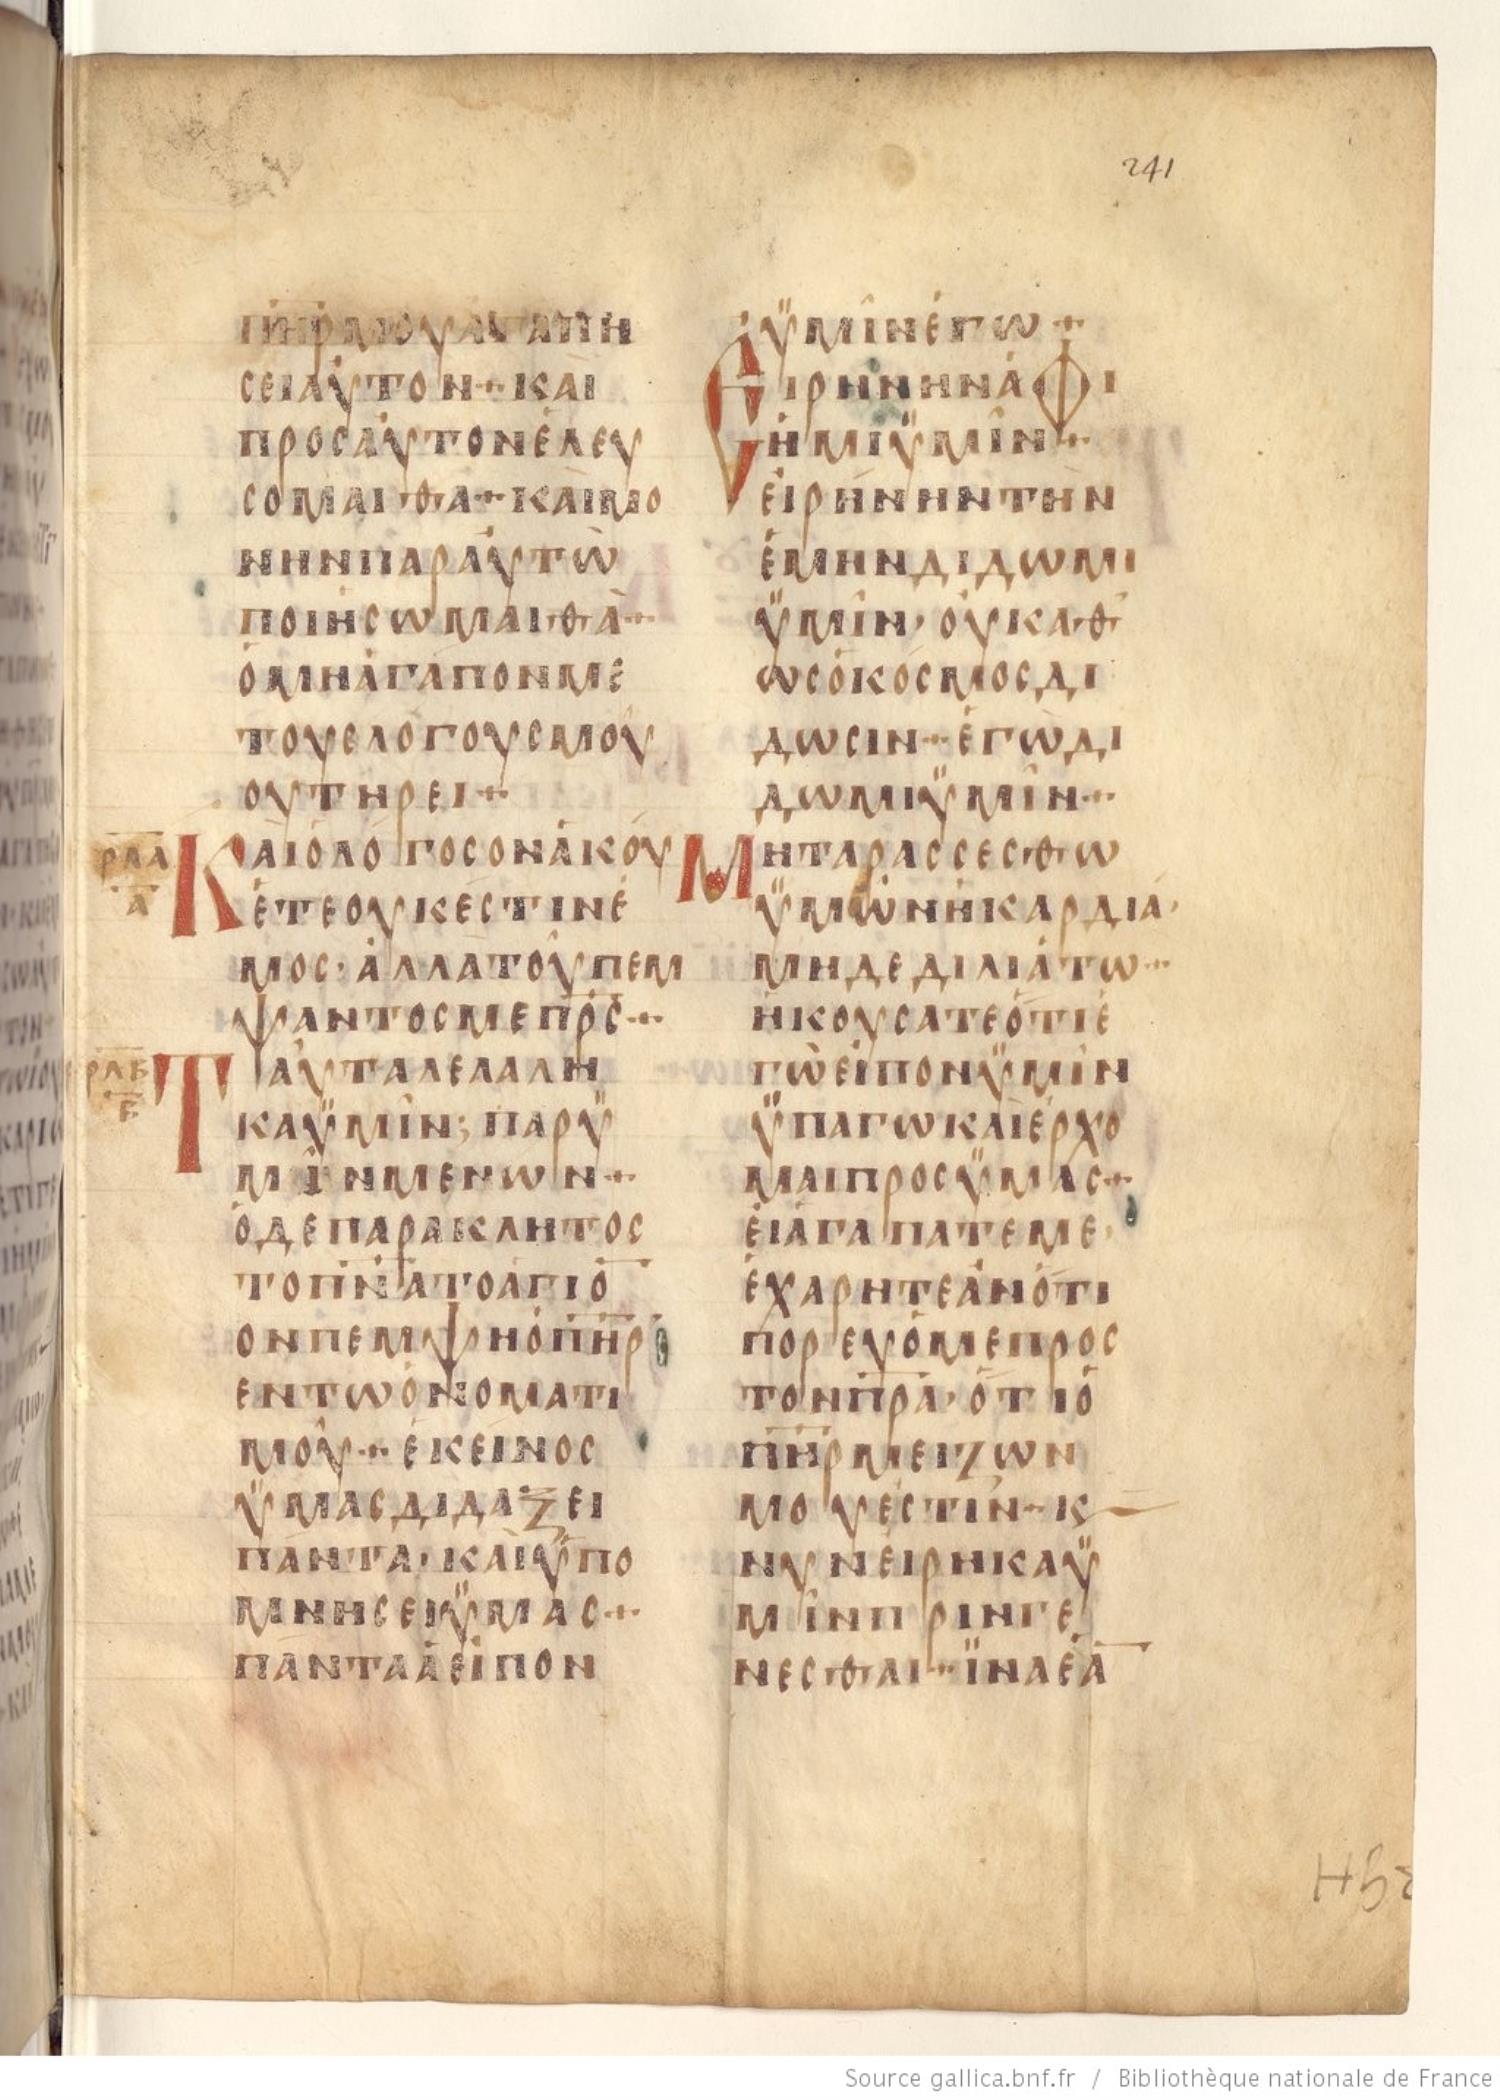 241
ΠΗΡΜΟΥΑΓΑΠΗ
ΣΕΙΑΥΤΟΝ·+ΚΑΙ
ΠΡΟΣΑΥΤΟΝΕΛΕΥ
ΣΟΜΑΙΘΑ·+ΚΑΙΜΟ
ΝΗΝΠΑΡΑΥΤΩ
ΠΟΙΗΣΩΜΑΙΘΑ·+
ΟΜΗΑΓΑΠΟΝΜΕ
ΤΟΥΣΛΟΓΟΥΣΜΟΥ
ΟΥΤΗΡΕΙ·+
ΡΛΑ
Α
ΚΑΙΟΛΟΓΟΣΟΝΑΚΟΥ
ΕΤΕΟΥΚΕΣΤΙΝΕ
ΜΟΣ·ΑΛΛΑΤΟΥΠΕΜ
ΨΑΝΤΟΣΜΕΠΡΣ·+
ΡΛΒ
ΤΑΥΤΑΛΕΛΑΛΗ
ΚΑΫΜΙΝ;ΠΑΡΫ
ΜΙΝΜΕΝΩΝ·+
ΟΔΕΠΑΡΑΚΛΗΤΟΣ
ΤΟΠΝΑΤΟΑΓΙΟ
ΟΝΠΕΜΨΗΟΠΗΡ
ΕΝΤΩΟΝΟΜΑΤΙ
ΜΟΥ·+ΕΚΕΙΝΟΣ
ΫΜΑΣΔΙΔΑΞΕΙ
ΠΑΝΤΑ·ΚΑΙΫΠΟ
ΜΝΗΣΕΙΫΜΑΣ·+
ΠΑΝΤΑΑΕΙΠΟΝ
ΫΜΙΝΕΓΩ·+
ΕΙΡΗΝΗΝΑΦΙ
ΗΜΙΫΜΙΝ·+
ΕΙΡΗΝΗΝΤΗΝ
ΕΜΗΝΔΙΔΩΜΙ
ΫΜΙΝ·ΟΥΚΑΘ
ΩΣΟΚΟΣΜΟΣΔΙ
ΔΩΣΙΝ·+ΕΓΩΔΙ
ΔΩΜΙΫΜΙΝ·+
ΜΗΤΑΡΑΣΣΕΣΘΩ
ΫΜΩΝΗΚΑΡΔΙΑ·
ΜΗΔΕΔΙΛΙΑΤΩ·+
ΗΚΟΥΣΑΤΕΟΤΙΕ
ΓΩΕΙΠΟΝΫΜΙΝ
ΫΠΑΓΩΚΑΙΕΡΧΟ
ΜΑΙΠΡΟΣΫΜΑΣ·+
ΕΙΑΓΑΠΑΤΕΜΕ·
ΕΧΑΡΗΤΕΑΝΟΤΙ
ΠΟΡΕΥΟΜΕΠΡΟΣ
ΤΟΝΠΡΑ·ΟΤΙΟ
ΠΗΡΜΕΙΖΩΝ
ΜΟΥΕΣΤΙΝ·+Κ
ΝΥΝΕΙΡΗΚΑΫ
ΜΙΝΠΡΙΝΓΕ
ΝΕΣΘΑΙ·+ΪΝΑΕΑ
Source gallica.bnf.fr / Bibliothèque nationale de France